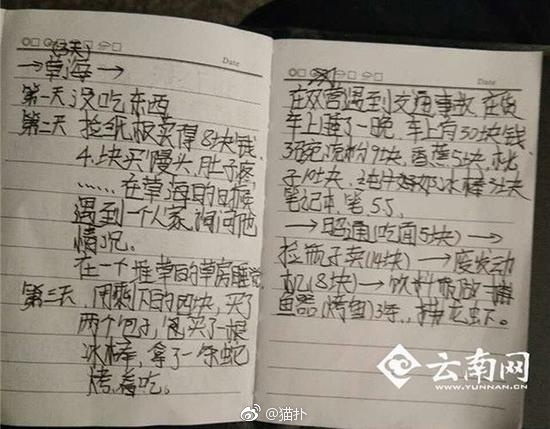 Date
(3天)
→草海→
第一天没吃东西
第二天 捡纸板卖得8块钱
4块买馒头,肚子疼,
……在草海的
遇到一个人家,询问他
情况。
在一个堆草的草房睡觉
第三天,用剩下的四块,买了
两个包子,还买了一根
冰棒,拿了一条蛇
烤着吃。
Date
在双宫遇到交通事故,在货
车上睡了一晚,车上有30块钱
9块,香蕉5块,桃
子 块,纯牛奶,冰棒3块
笔记本笔5.5,
→昭通(吃面5块)→
捡瓶子卖(14块)→废发动
机(8块)→饮料瓶做一捕
鱼器(烤鱼)3条,,花虾。
云南网
WWW.YUNNAN.CN
@猫扑